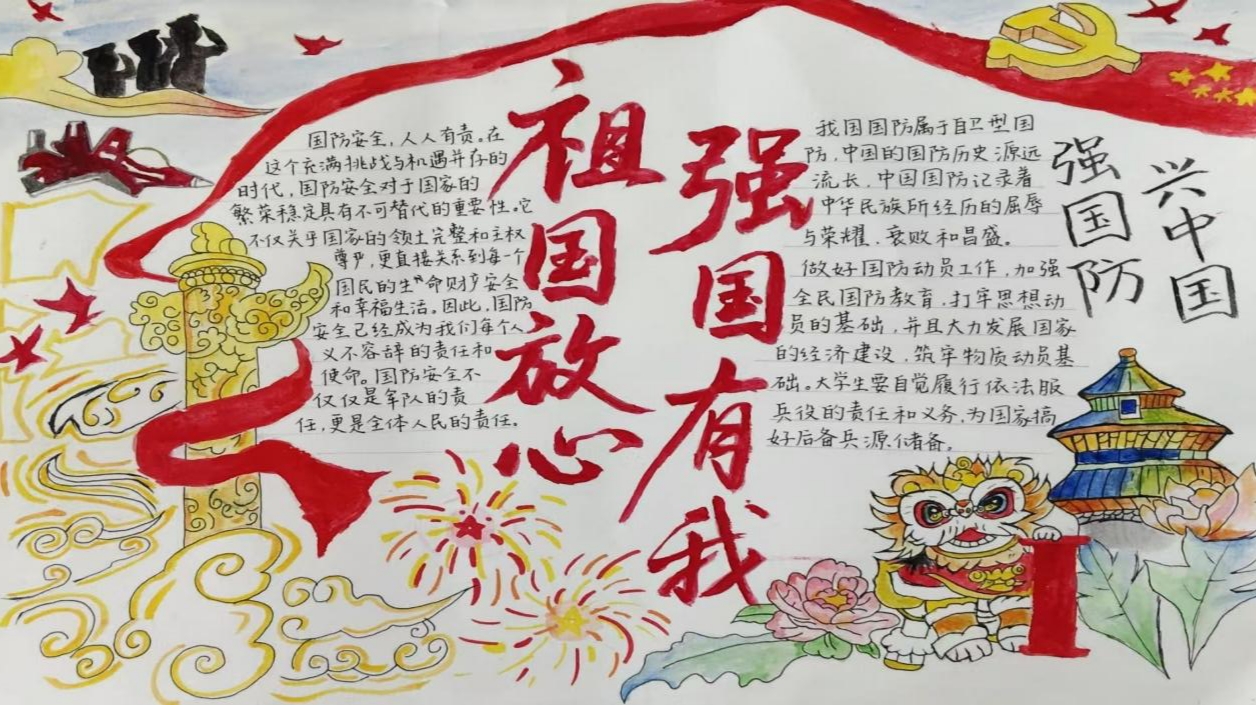 祖国放心
强国有我
国防安全，人人有责。在
这个充满挑战与机遇并存的
时代，国防安全对于国家的
繁荣稳定具有不可替代的重要性。它
不仅关乎国家的领土完整和主权
尊严，更直接关系到每一个
国民的生命财产安全
和幸福生活。因此，国防
安全已经成为我们每个人
义不容辞的责任和
使命。国防安全不
仅仅是军队的责
任，更是全体人民的责任。
我国国防属于自卫型国
防，中国的国防历史源远
流长，中国国防记录着
中华民族所经历的屈辱
与荣耀、衰败和昌盛。
做好国防动员工作，加强
全民国防教育，打牢思想动
员的基础，并且大力发展国家
的经济建设，筑牢物质动员基
础。大学生要自觉履行依法服
兵役的责任和义务，为国家搞
好后备兵源储备。
强国防
兴中国